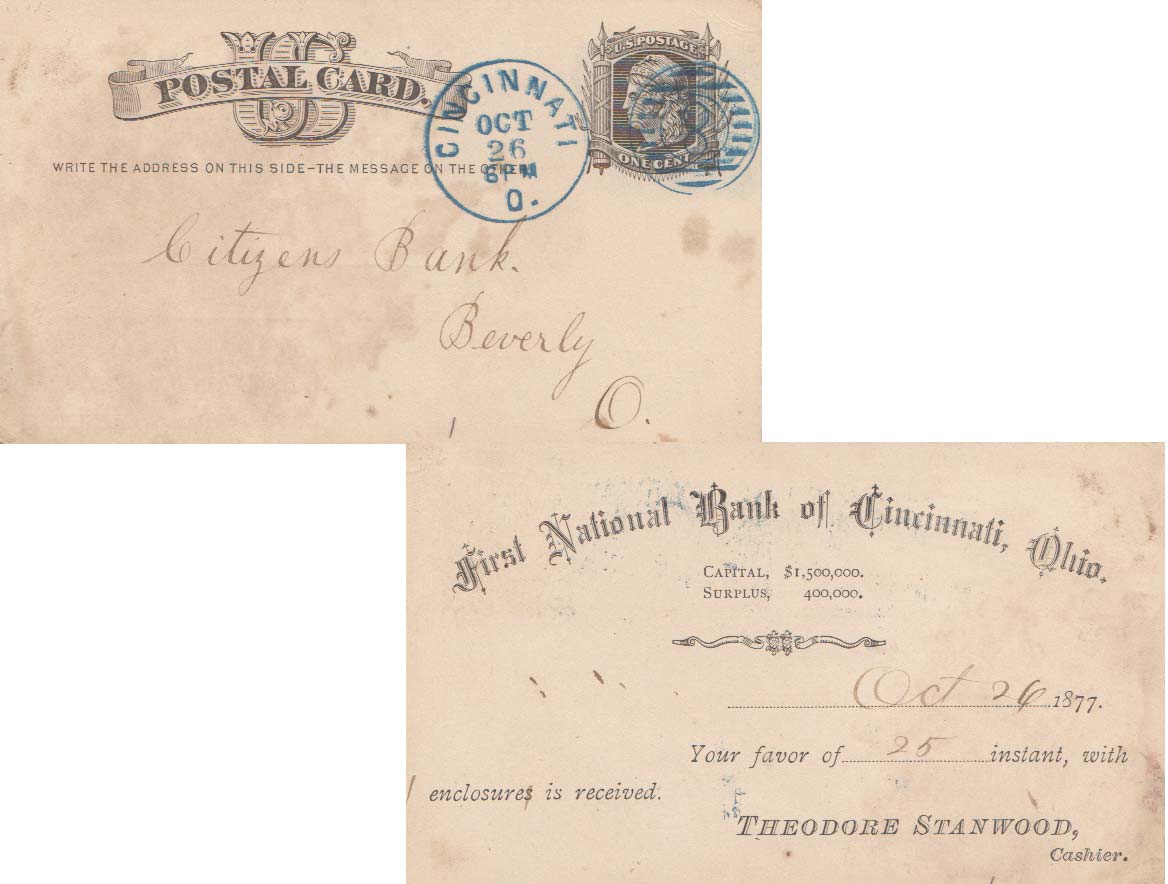 US
POSTAL CARD.
WRITE THE ADDRESS ON THIS SIDE–THE MESSAGE ON THE OTHER
CINCINNATI
OCT
26
6 PM
O.
U.S. POSTAGE
ONE CENT
Citizens Bank.
Beverly
O.
First National Bank of Cincinnati, Ohio.
CAPITAL, $1,500,000.
SURPLUS, 400,000.
Oct 26 1877.
Your favor of 25 instant, with
enclosures is received.
THEODORE STANWOOD,
Cashier.